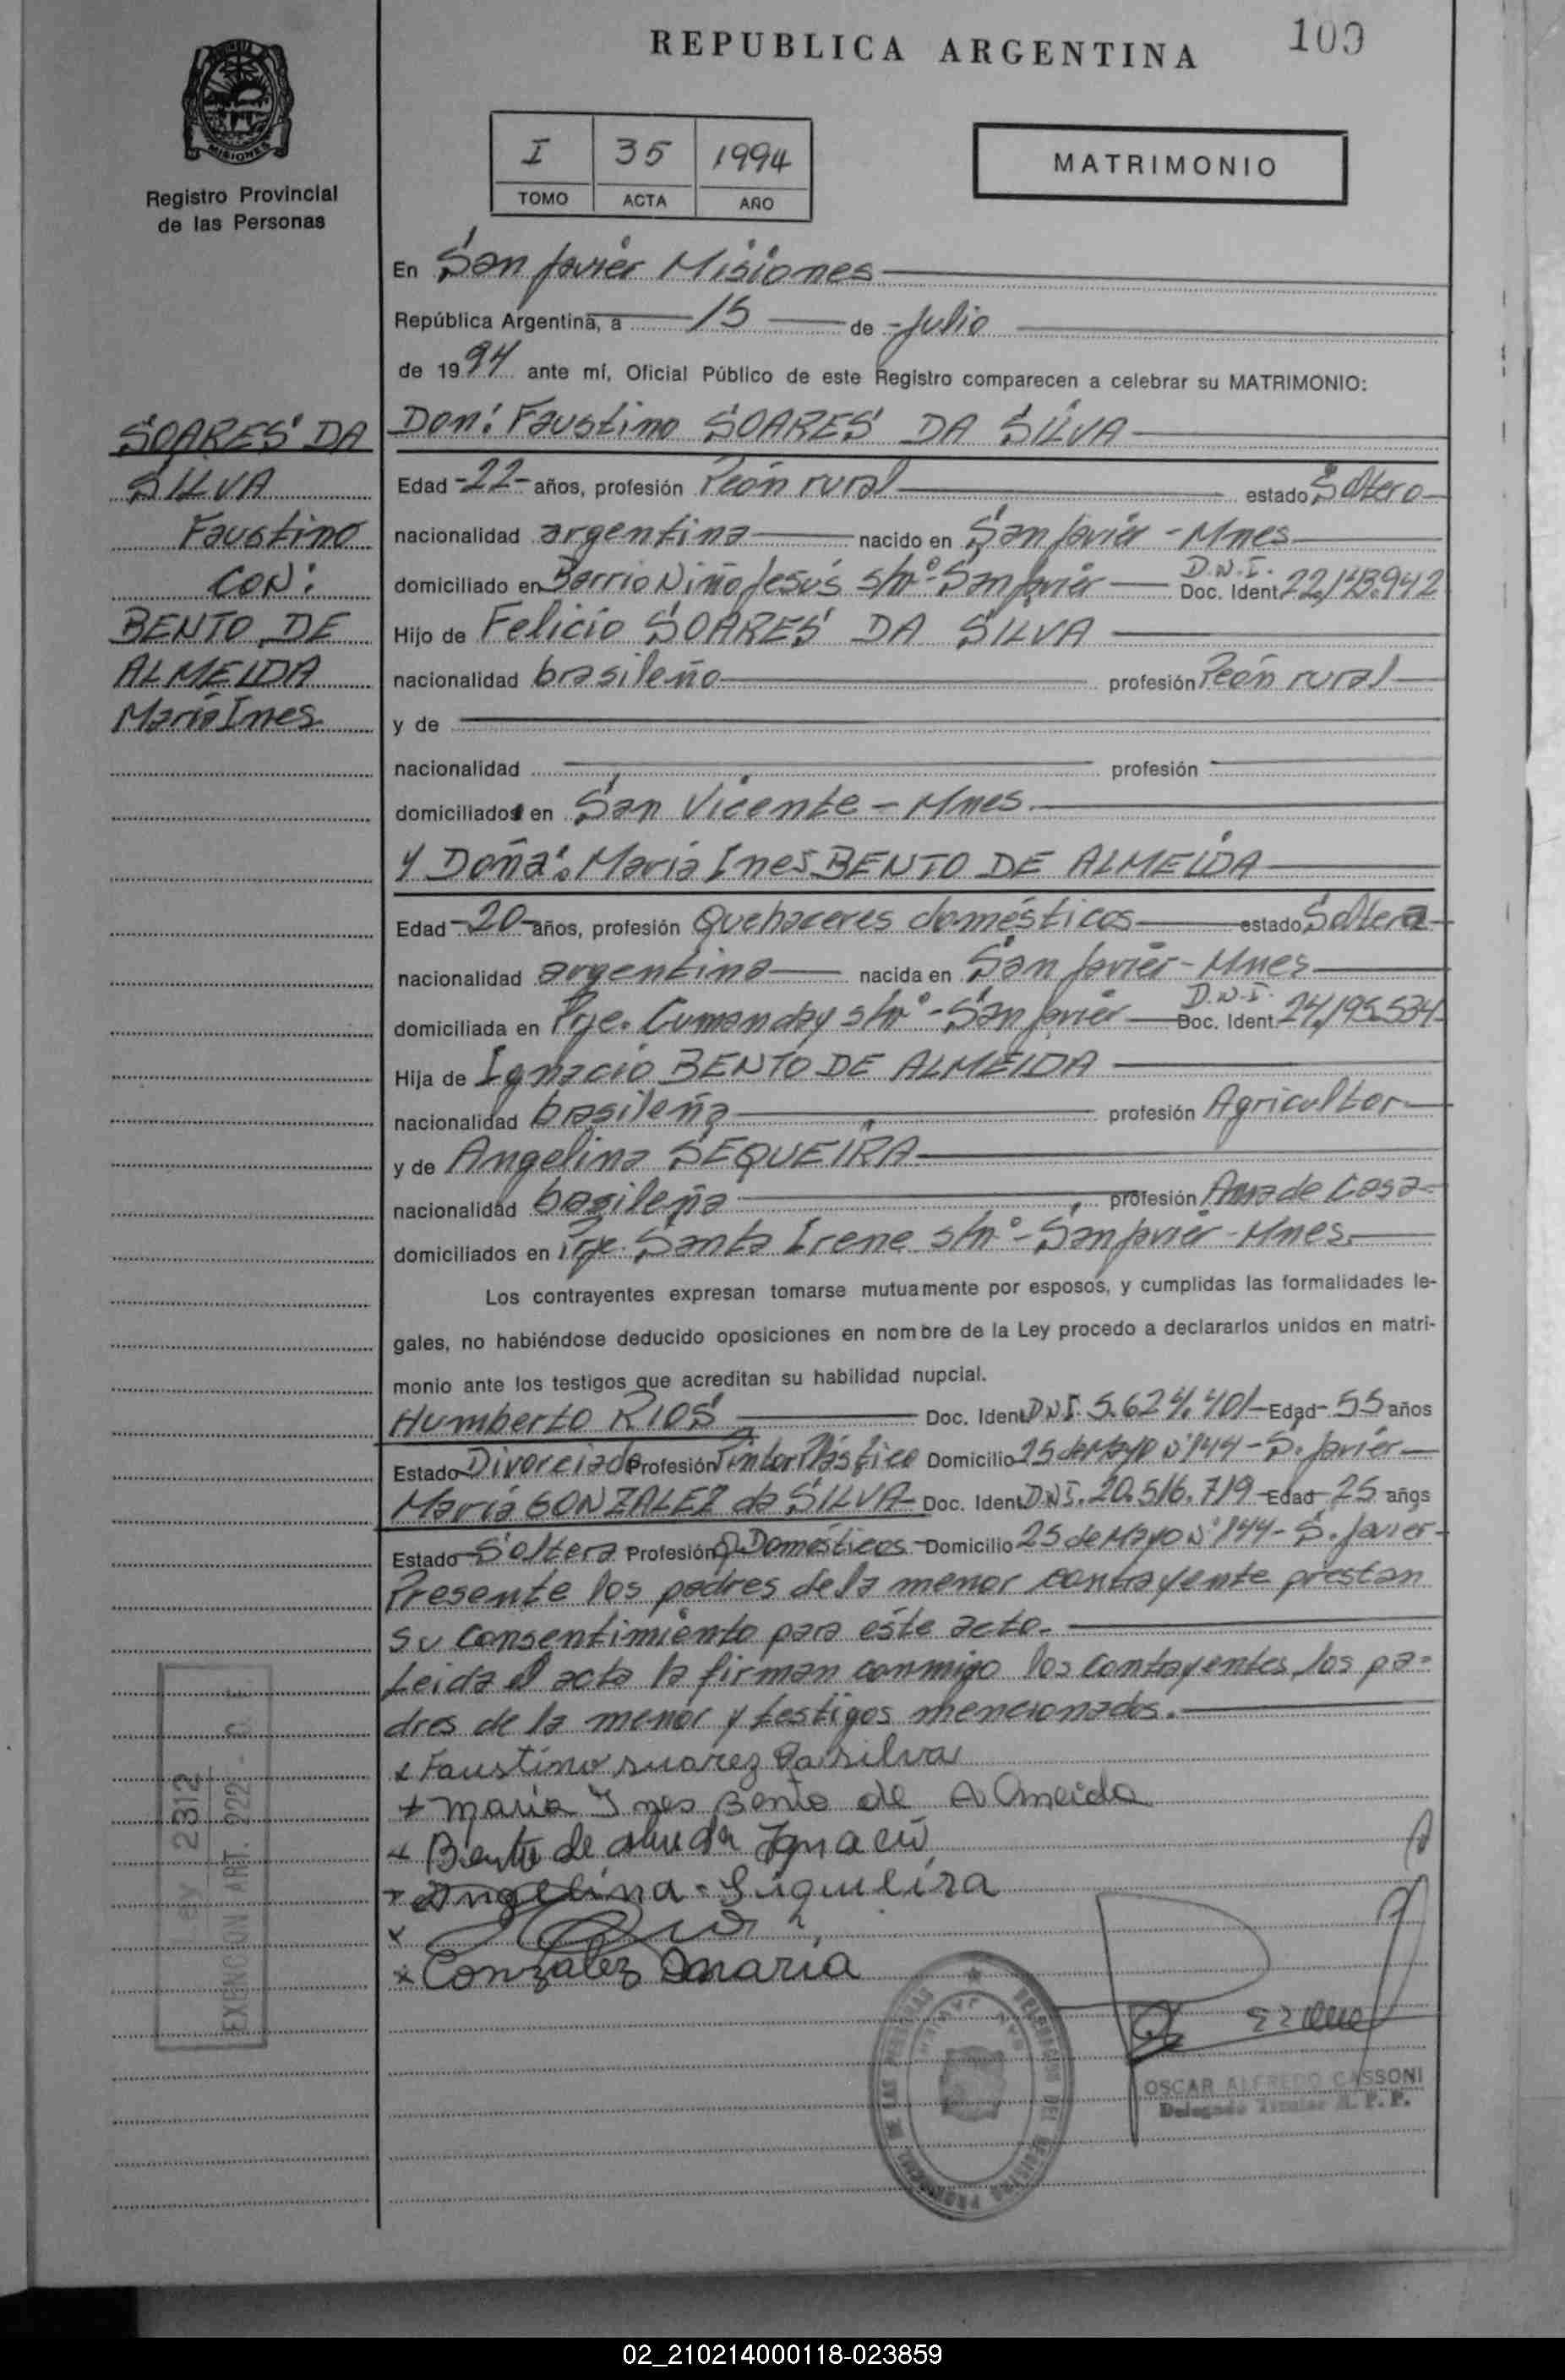 REPUBLICA ARGENTINA
109
MISIONES
Registro Provincial
de las Personas
I 35 1994
TOMO ACTA AÑO
MATRIMONIO
En San Javier Misiones
República Argentina, a 15 de Julio
de 1994 ante mí, Oficial Público de este Registro comparecen a celebrar su MATRIMONIO:
SOARES DA
SILVA
Faustino
CON:
BENTO DE
ALMEIDA
María Ines
Don: Faustino SOARES DA SILVA
Edad -22- años, profesión Peón rural estado Soltero
nacionalidad argentina nacido en San Javier - Mnes
domiciliado en Barrio Niño Jesús s/nº - San Javier D.N.I. Doc. Ident 22.143.942
Hijo de Felicio SOARES DA SILVA
nacionalidad brasileño profesión Peón rural
y de
nacionalidad profesión
domiciliados en San Vicente - Mnes
Y Doña: María Ines BENTO DE ALMEIDA
Edad -20- años, profesión Quehaceres domésticos estado Soltera
nacionalidad argentina nacida en San Javier - Mnes
domiciliada en Pje. Cumanday s/nº - San Javier D.N.I. Doc. Ident 24.195.534
Hija de Ignacio BENTO DE ALMEIDA
nacionalidad brasileña profesión Agricultor
y de Angelina SEQUEIRA
nacionalidad basileña profesión Ama de Casa
domiciliados en Pje. Santa Irene s/nº - San Javier - Mnes.
Los contrayentes expresan tomarse mutuamente por esposos, y cumplidas las formalidades le-
gales, no habiéndose deducido oposiciones en nombre de la Ley procedo a declararlos unidos en matri-
monio ante los testigos que acreditan su habilidad nupcial.
Humberto RIOS Doc. Ident D.N.I. 5.624.401 Edad 55 años
Estado Divorciado Profesión Pintor Plástico Domicilio 25 de Mayo Nº 144 - S. Javier
María GONZALEZ da SILVA Doc. Ident D.N.I. 20.516.719 Edad 25 años
Estado Soltera Profesión Q. Domésticos Domicilio 25 de Mayo Nº 144 - S. Javier
Presente los padres de la menor contrayente prestan
su consentimiento para este acto.
Leida el acta la firman conmigo los contrayentes, los pa-
dres de la menor y testigos mencionados.
x Faustino suarez Da silva
x maria Ynes Bento de Almeida
x Bento de almeda Ignacio
x Angelina - Siqueira
x
x Gonzalez maria
Ley 2312
EXENCION ART. 222
OSCAR ALFREDO CASSONI
Delegado Titular R. P. P.
02_210214000118-023859